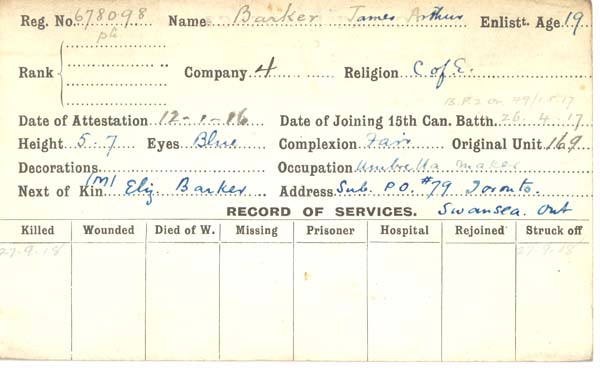 Reg. No. 678098 Name Barker James Arthur Enlistt. Age 19
pte
Rank Company 4 Religion C of E.
B.P.2 Or.
Date of Attestation 12-1-16 Date of Joining 15th Can. Battn. 26.4.17
Height 5.7 Eyes Blue Complexion Fair Original Unit 169
Decorations Occupation Umbrella maker
Next of Kin (M) Eliz Barker Address Sub. P.O. #79 Toronto.
RECORD OF SERVICES. Swansea. Ont
Killed Wounded Died of W. Missing Prisoner Hospital Rejoined Struck off
27-9-18 27-9-18